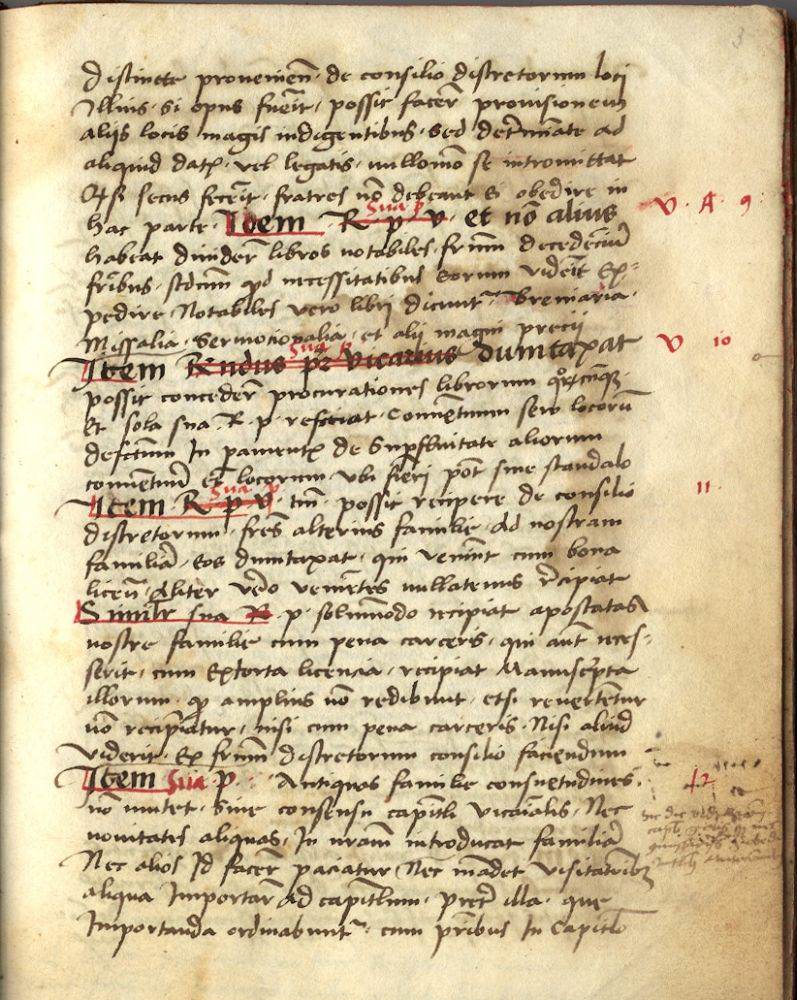 3
distincte provenien̄· de consilio discretorum loci
Illius· Si opus fuēit, possit facer̄ provisionem
aliis locis magis indigentibus· Sed det̄minate ad
aliquid dat· vel legatis· nullomō se intromittat
Et si secus fecēit· fratres nō debeant ei obedire in
hac parte· Item R Sua p v· et nō alius
V· A· 9·
habeat divider̄ libros notabiles· fr̄um decedenciū
fr̄ibus· scd̄um qd necessitatibus eorum vidēit Ex-
pedire· Notabiles vero libri dicunt̄· breviaria·
Missalia· Sermocionalia· et alii magni precii
Item Rndus Sua p pr̄ vicarius dumtaxat
V 10
possit conceder̄ procurationes librorum
Et sola sua· R· p· reficiat· Conventuum seu locorū
defectum In de Supfluitate aliorum
conventuū et locorum· ubi fieri pōt sine scandalo
Item· R Sua p v· tm̄· possit recipere de consilio
11·
discretorum· fr̄es alterius familie· Ad nostram
familiā· Eos dumtaxat· qui veniūt cum bona
licen̄· Aliter vēo venientes nullatenus r̄cipiat
Similr sua R· p· solummodo recipiat apostatas
nostre familie cum pena carceris· qui aut̄ reces-
serit· cum Extorta licencia· recipiat Manuscr̄pta
illorum· qp amplius nō redibunt· etsi revertentur
nō recipiātur· nisi cum pena carceris· Nisi aliud
viderit· Ex fr̄um discretorum consilio faciendum
Item Sua p· Antiquas familie consuetudines·
12
nō mutet· Sine consensu capitli vicaīalis· Nec
novitates aliquas· In nrām introducat familiā
Nec alios Id facer̄ paciatur Nec mādet visitatoribz
aliqua Importar̄ Ad capitlum· pret̄ illa· que
Importanda ordinabunt̄· cum pr̄ibus In Capitlo